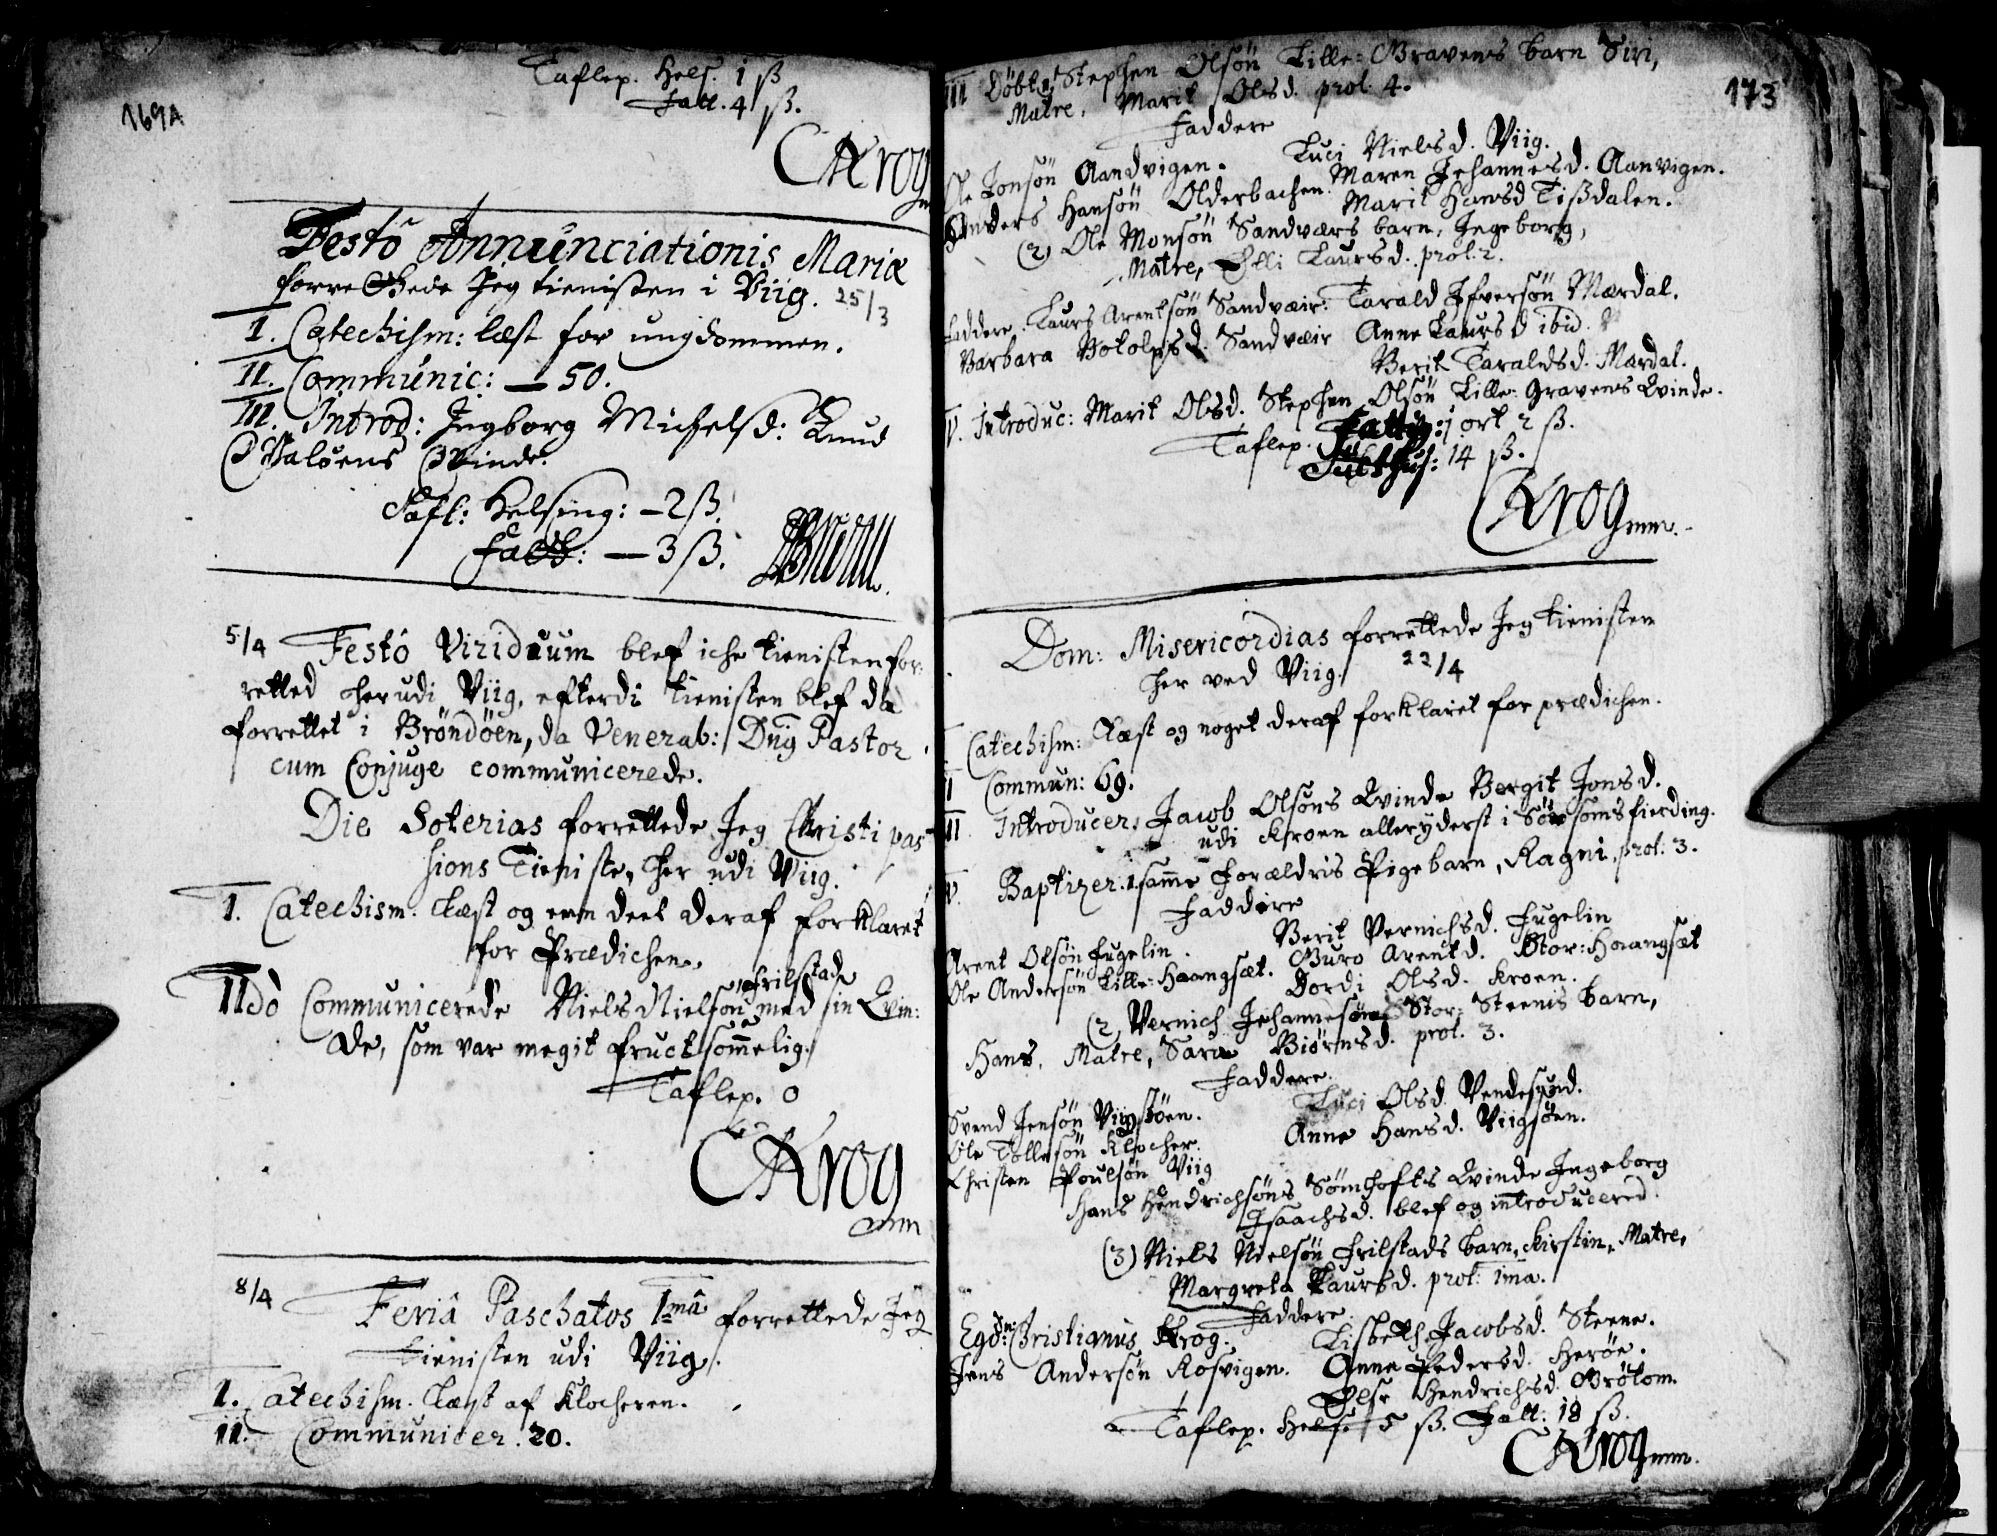 169A
Taflep. Hels. 1 ß
Fatt. 4 ß.
CKrog
mm
Festo Annunciationis Mariæ
forrettede Jeg tienisten i Viig. 25/3
I. Catechism: læst for ungdommen.
II. Communic: — 50.
III. Introd: Ingborg Michelsd: Knud
Hvaløens Qvinde.
Tafl: Helsing: — 2 ß.
Fatt: — 3 ß.
5/4 Festo Viridium blef iche tienisten for-
retted her udi Viig, efterdi tienisten blef da
forrettet i Brøndøen, da Venerab: Dnj Pastor
cum Conjuge communicerede.
Die Soterias forrettede Jeg Christi pas-
sions Tieniste, her udi Viig.
I. Catechism. Læst og een deel deraf forklaret
for Prædichen.
Frilstad
IIdò Communicerede Niels Nielsøn med sin Qvin:
de, som var megit fructsommelig.
Taflep. 0
CKrog
mm
8/4 Feriâ Paschatos 1mâ forrettede Jeg
tienisten udi Viig.
I. Catechism. Læst af Klocheren.
II. Communicer. 20.
173
III Døbt 1 Stephen Olsøn Lille: Gravens barn Siri,
Matre, Marit Olsd. prol. 4.
Faddere
Ole Jonsøn Aandvigen. Luci Nielsd. Viig.
Anders Hansøn Olderbachen. Maren Johannesd. Aanvigen.
Marit Hansd Tißdalen.
(2) Ole Monsøn Sandværs barn, Ingeborg,
Matre, Elli Laursd. prol. 2.
Faddere. Laurs Arentsøn Sandvæir. Tarald Ifversøn Mærdal.
Barbara Botolpsd. Sandvæir Anne Laursd ibid.
Berit Taraldsd. Mærdal.
IV. Introduc: Marit Olsd. Stephen Olsøn Lille-Gravens Qvinde.
Taflep. Fattig: 1 ort 2 ß.
14 ß.
CKrog mm.
Dom: Misericordias forrettede Jeg tienisten
her ved Viig. 22/4
I Catechism: Læst og noget deraf forklaret for prædichen.
II Commun: 69.
III Introducer. Jacob Olsøns Qvinde Bergit Jonsd.
udi Kroen alleryderst i Sørsomsfierding.
IV. Baptizer. 1. samme Forældris Pigebarn, Ragni, prol: 3.
Faddere
Arent Olsøn Fugelin. Berit Vernichsd. Fugelin
Ole Andersøn Lille-Haangsæt. Guro Arentd. Stor: Haangsæt
Dordi Olsd. Kroen.
(2, Vernich Johannesøn Stor: Steens barn,
Hans. Matre, Sara Biørnsd. prol. 3.
Faddere.
Svend Jensøn Viigsøen. Luci Olsd. Vendesund.
Ole Tollesøn Klocher. Anne Hansd. Viigsøen.
Christen Poulsøn Viig
Hans Hendrichsøns Sømhofts Qvinde Ingeborg
Isaachsd. blef og introducered.
(3) Niels Nielsøn Frilstads barn, Kirstin, Matre,
Margreta Laursd. prol: 1ma.
Faddere
Ego Dn: Christianus Krog. Lisbeth Jacobsd. Steene.
Jens Andersøn Rosvigen. Anne Pedersd. Herøe.
Else Hendrichsd. Grøtom.
Taflep. Hels. 5 ß. Fatt: 18 ß.
CKrog mm.